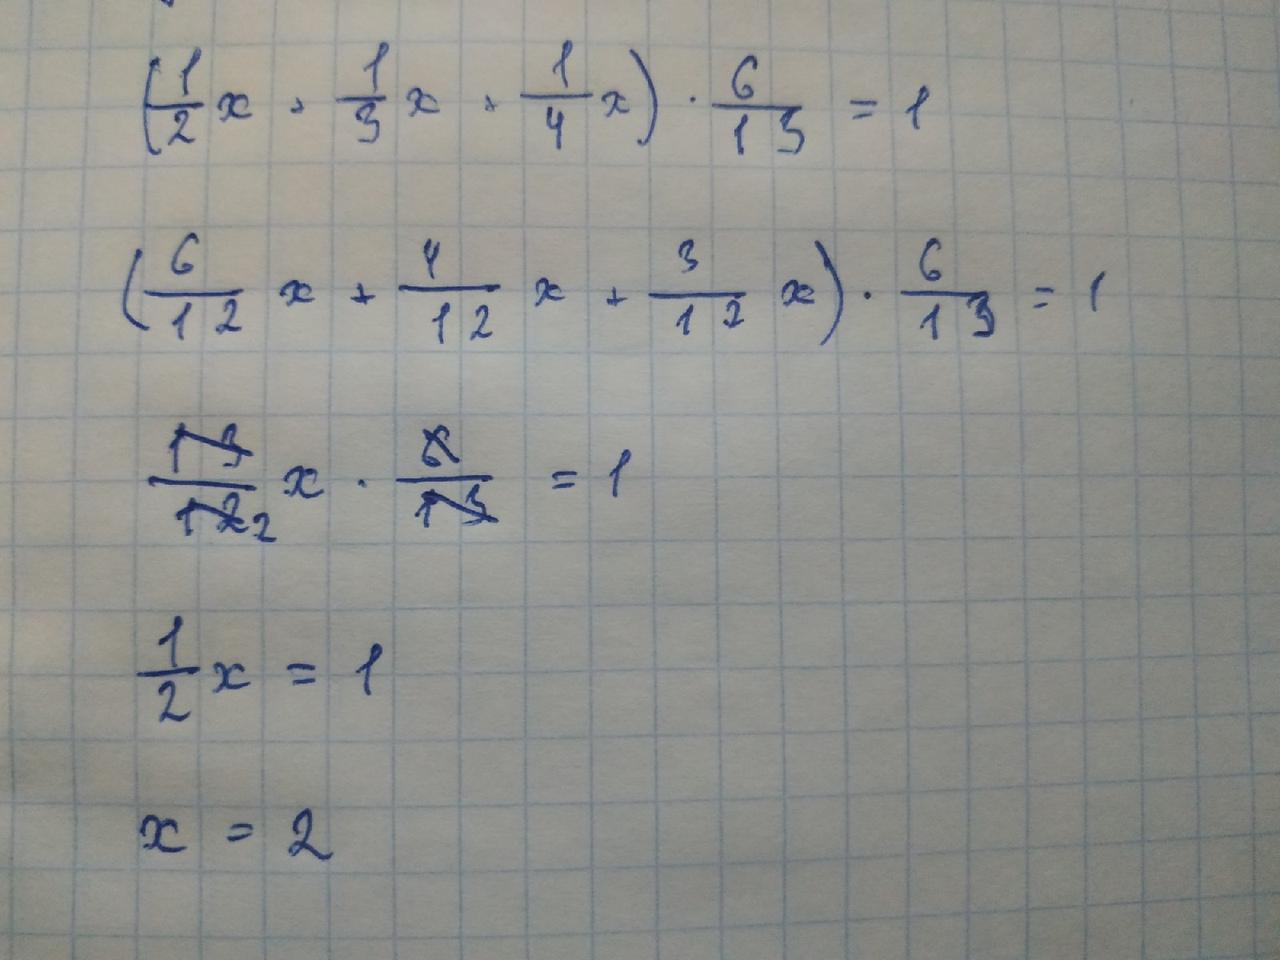 (1/2 x + 1/3 x + 1/4 x) · 6/13 = 1
(6/12 x + 4/12 x + 3/12 x) · 6/13 = 1
13/12 2 x · 6/13 = 1
1/2 x = 1
x = 2